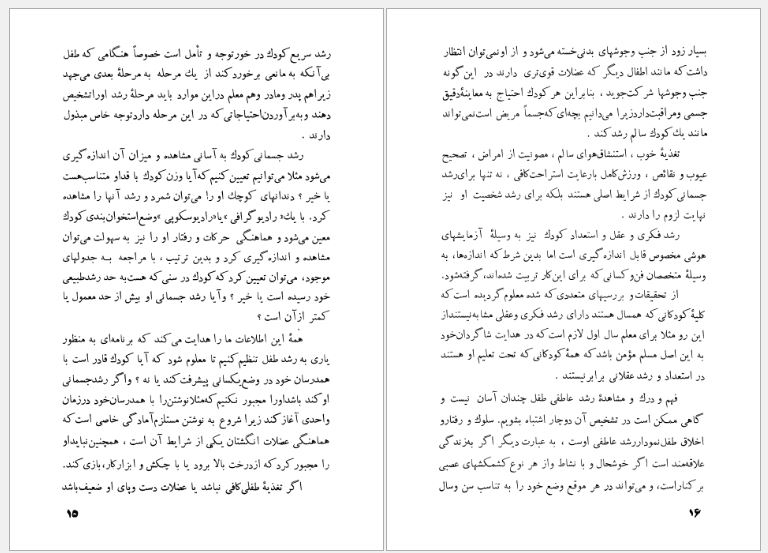 رشد سریع کودك در خور توجه و تأمل است خصوصاً هنگامی که طفل
بی‌آنکه به مانعی برخورد کند از یك مرحله به مرحلهٔ بعدی می‌جهد
زیرا هم پدر ومادر وهم معلم دراین موارد باید مرحلهٔ رشد اورا تشخیص
دهند وبه‌بر آوردن احتیاجاتی که در این مرحله دارد توجه خاص مبذول
دارند .
رشد جسمانی کودك به آسانی مشاهده و میزان آن اندازه گیری
می‌شود مثلا می‌توانیم تعیین کنیم که آیا وزن کودك با قد او متناسب هست
یا خیر ؟ دندانهای کوچك او را می‌توان شمرد و رشد آنها را مشاهده
کرد. با یك « رادیو گرافی » یا « رادیوسکوپی » وضع استخوان‌بندی کودك
معین می‌شود و هماهنگی حرکات و رفتار او را نیز به سهولت می‌توان
مشاهده و اندازه گیری کرد و بدین ترتیب ، با مراجعه به جدولهای
موجود، می‌توان تعیین کرد که کودك در سنی که هست به حد رشد طبیعی
خود رسیده است یا خیر ؟ و آیا رشد جسمانی او بیش از حد معمول یا
کمتر از آن است ؟
همهٔ این اطلاعات ما را هدایت می‌کند که برنامه‌ای به منظور
یاری به رشد طفل تنظیم کنیم تا معلوم شود که آیا کودك قادر است با
همدرسان خود در وضع یکسانی پیشرفت کند یا نه ؟ واگر رشد جسمانی
او کند باشد اورا مجبور نکنیم که مثلا نوشتن را با همدرسان خود در زمان
واحدی آغاز کند زیرا شروع به نوشتن مستلزم آمادگی خاصی است که
هماهنگی عضلات انگشتان یکی از شرایط آن است ، همچنین نباید او
را مجبور کرد که از درخت بالا برود یا با چکش و ابزار کار، بازی کند.
اگر تغذیهٔ طفلی کافی نباشد یا عضلات دست وپای او ضعیف باشد
۱۵
بسیار زود از جنب وجوشهای بدنی خسته می‌شود و از او نمی‌توان انتظار
داشت که مانند اطفال دیگر که عضلات قوی‌تری دارند در این گونه
جنب وجوشها شرکت جوید ، بنابراین هر کودك احتیاج به معاینهٔ دقیق
جسمی ومراقبت دارد زیرا می‌دانیم بچه‌ای که جسماً مریض است نمی‌تواند
مانند یك کودك سالم رشد کند .
تغذیهٔ خوب ، استنشاق هوای سالم ، مصونیت از امراض ، تصحیح
عیوب و نقائص ، ورزش کامل با رعایت استراحت کافی ، نه تنها برای رشد
جسمانی کودك از شرایط اصلی هستند بلکه برای رشد شخصیت او نیز
نهایت لزوم را دارند .
رشد فکری و عقل و استعداد کودك نیز به وسیلهٔ آزمایشهای
هوشی مخصوص قابل اندازه گیری است اما بدین شرط که اندازه‌ها، به
وسیلهٔ متخصصان فن وکسانی که برای این کار تربیت شده‌اند، گرفته شود.
از تحقیقات و بررسیهای متعددی که شده معلوم گردیده است که
کلیهٔ کودکانی که همسال هستند دارای رشد فکری وعقلی مشابه نیستند از
این رو مثلا برای معلم سال اول لازم است که در هدایت شاگردان خود
به این اصل مسلم مؤمن باشد که همهٔ کودکانی که تحت تعلیم او هستند
در استعداد و رشد عقلانی برابر نیستند .
فهم و درك و مشاهدهٔ رشد عاطفی طفل چندان آسان نیست و
گاهی ممکن است در تشخیص آن دوچار اشتباه بشویم. سلوك و رفتار و
اخلاق طفل نمودار رشد عاطفی اوست ، به عبارت دیگر اگر به زندگی
علاقه‌مند است اگر خوشحال و با نشاط و از هر نوع کشمکشهای عصبی
بر کنار است، و می‌تواند در هر موقع وضع خود را به تناسب سن وسال
۱۶